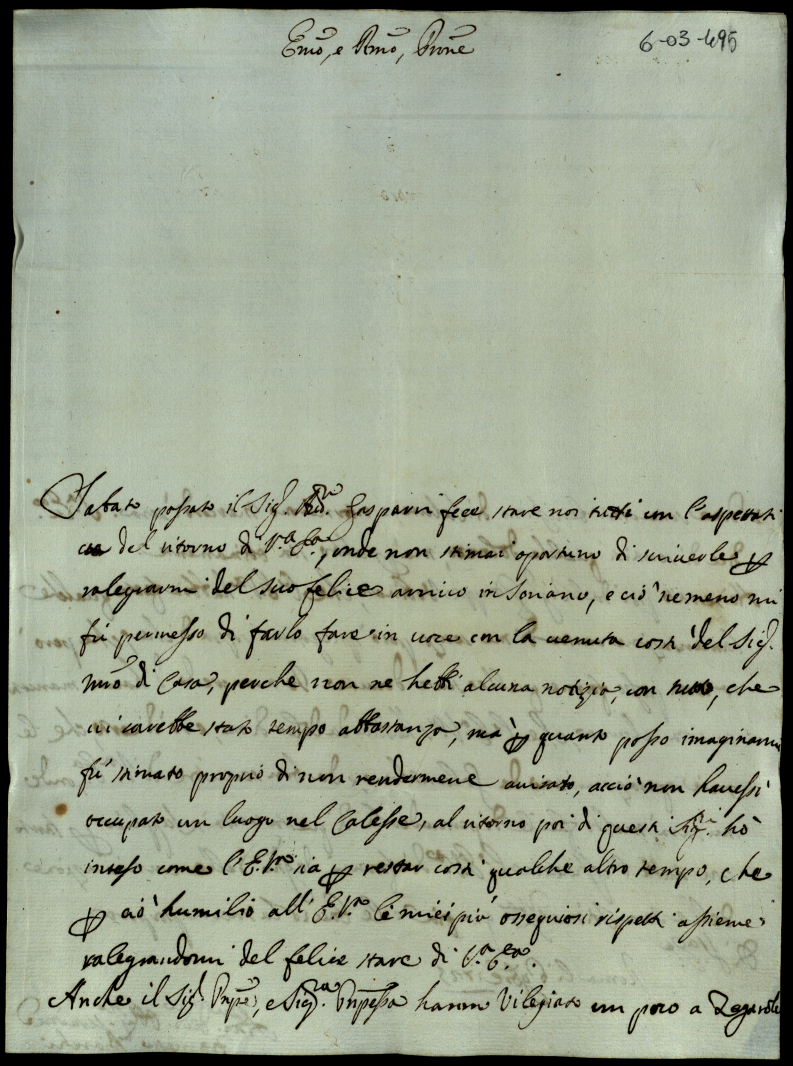 Emo, e Rmo, Prone
6-03-495
Sabato passato il Sig. Gasparri fece stare noi tutti con l'aspettati
del ritorno di V.a E.a, onde non stimai oportuno di scriverle p
ralegrarmi del suo felice arrivo in Soriano, e ciò nemeno mi
fù permesso di farlo fare in voce con la venuta costì del Sig.
mro di Casa, perche non ne hebbi alcuna notizia, con tutto, che
vi sarebbe stato tempo abbastanza, mà p quanto posso imaginarmi
fù stimato proprio di non rendermene avisato, acciò non havessi
occupato un luogo nel Calesse, al ritorno poi di questi Sig.ri hò
inteso come l'E.V.ra sia p restar costì qualche altro tempo, che
p ciò humilio all'E.V.ra le miei più osseguiosi rispetti assieme
ralegrandomi del felice stare di V.a E.a.
Anche il Sig.r Pnpe, e Sig.ra Pnpessa hanno Vilegiato un poco a Zagarolo